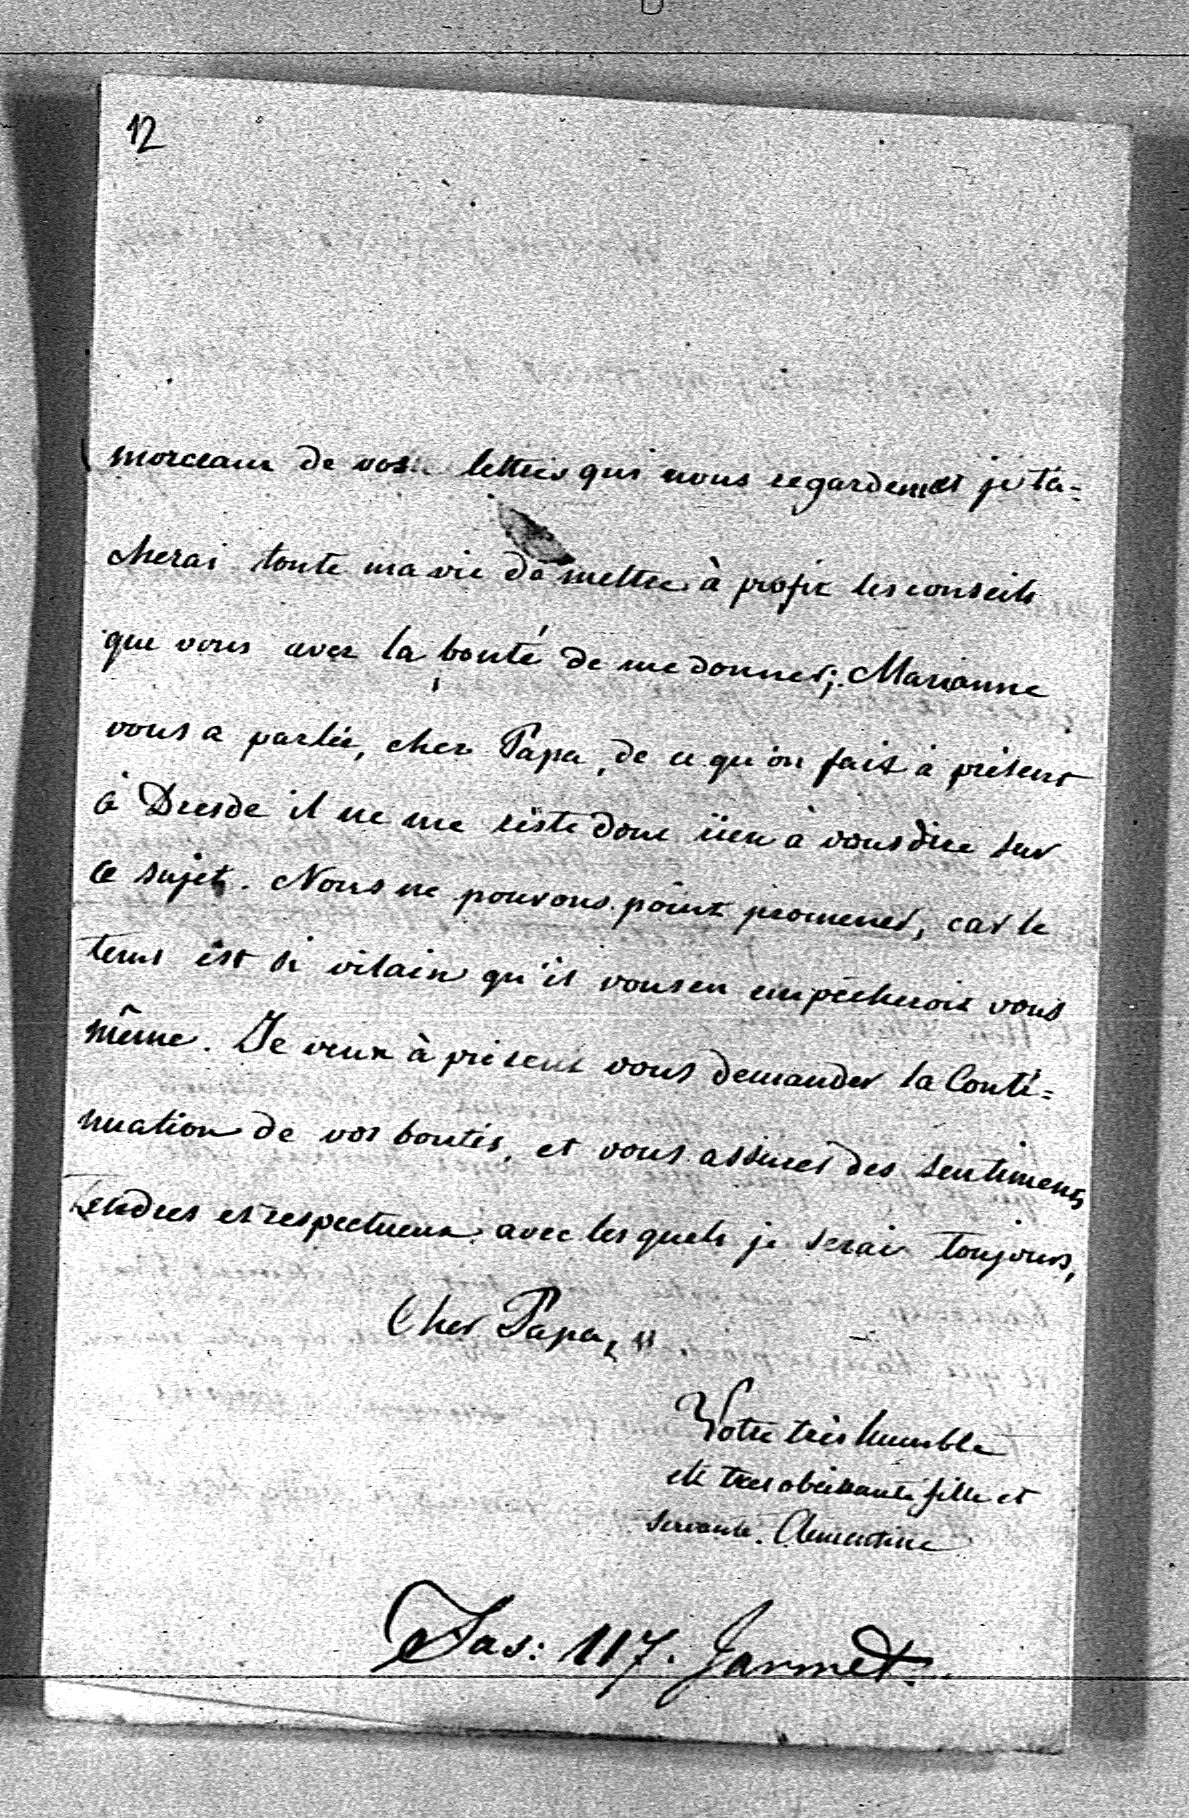 12
morceaux de vos lettres qui nous regardent et je ta-
cherai toute ma vie de mettre à profit les conseils
que vous avez la bonté de me donner; Marianne
vous a parlée, cher Papa, de ce qu'on fait à présent
à Dresde il ne me reste donc rien à vous dire sur
ce sujet. Nous ne pouvons point promener, car le
tems est si vilain qu'il vous en empêcheroit vous
même. Je veux à présent vous demander la Conti-
nuation de vos bontés, et vous assurer des sentimens
tendres et respectueux avec lesquels je serai toujours,
Cher Papa,
Votre très humble
et tres obéissante fille et
servante. Clementine
Fas: 117. Jarmet.